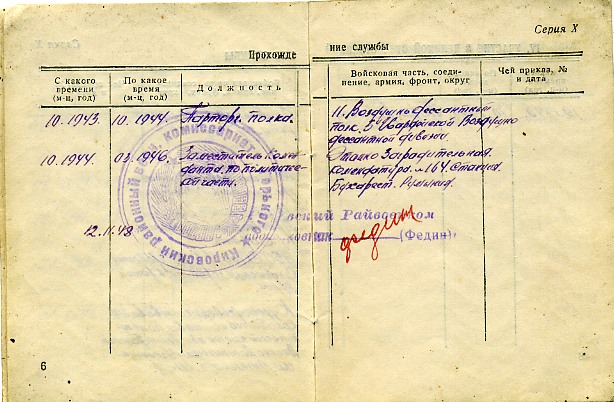 Серия X
Прохождение службы
С какого времени (м-ц, год)
По какое время (м-ц, год)
Должность
Войсковая часть, соединение, армия, фронт, округ
Чей приказ, № и дата
10.1943. 10.1944. Парторг полка. 11. Воздушно десантный
полк. 5й Гвардейской Воздушно
десантной дивизии
10.1944. 03.1946. Заместитель Комен-
данта. по политичес-
кой части.
Заградительная.
комендатура. №164. Станция.
Бухарест. Румыния.
12.11.48
вский Райвоенком
Федин
(Федин)
Кировский районный
6